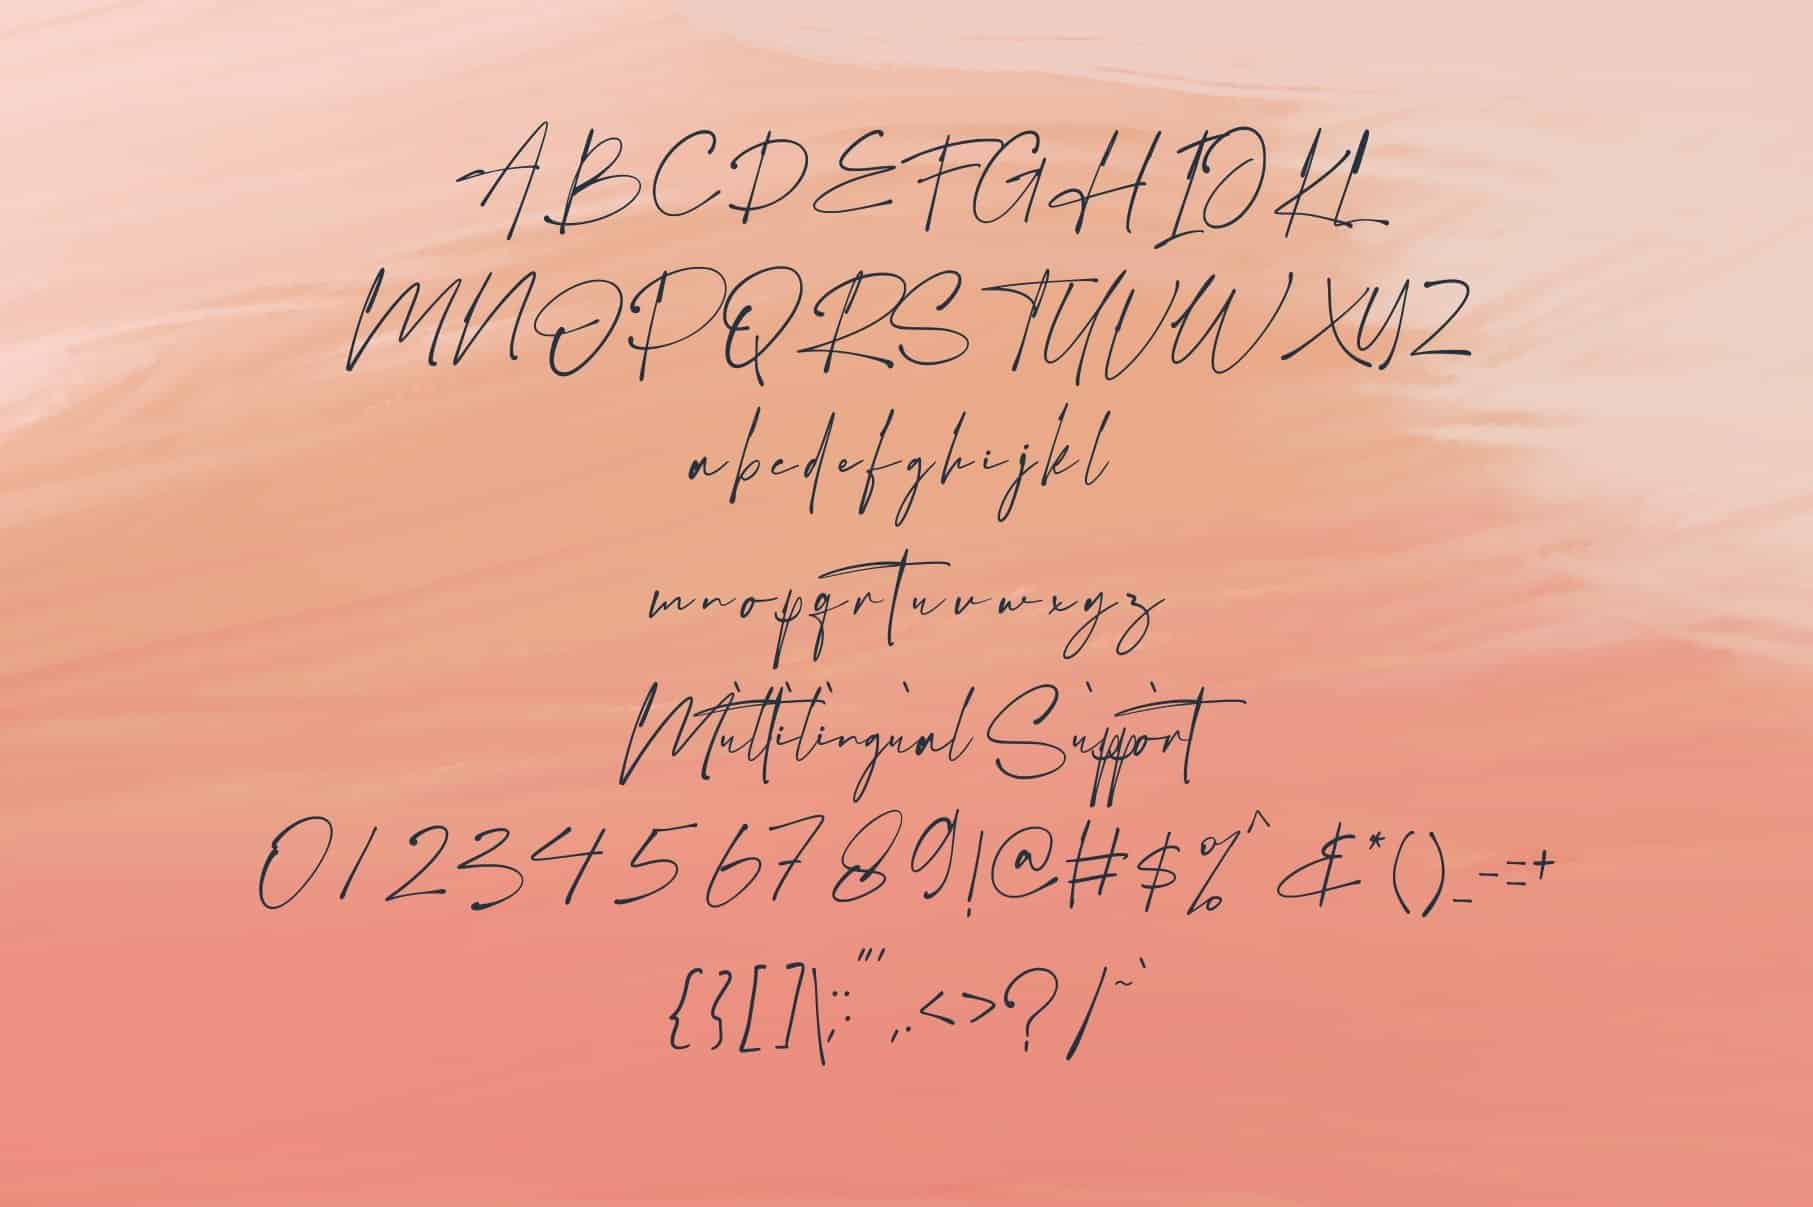 ABCDEFGHIJKL
MNOPQRSTUVWXYZ
abcdefghijkl
mnopqrstuvwxyz
Multilingual Support
0123456789!@#$%^&*()_-=+
{}[]\;:'",.<>?/~`